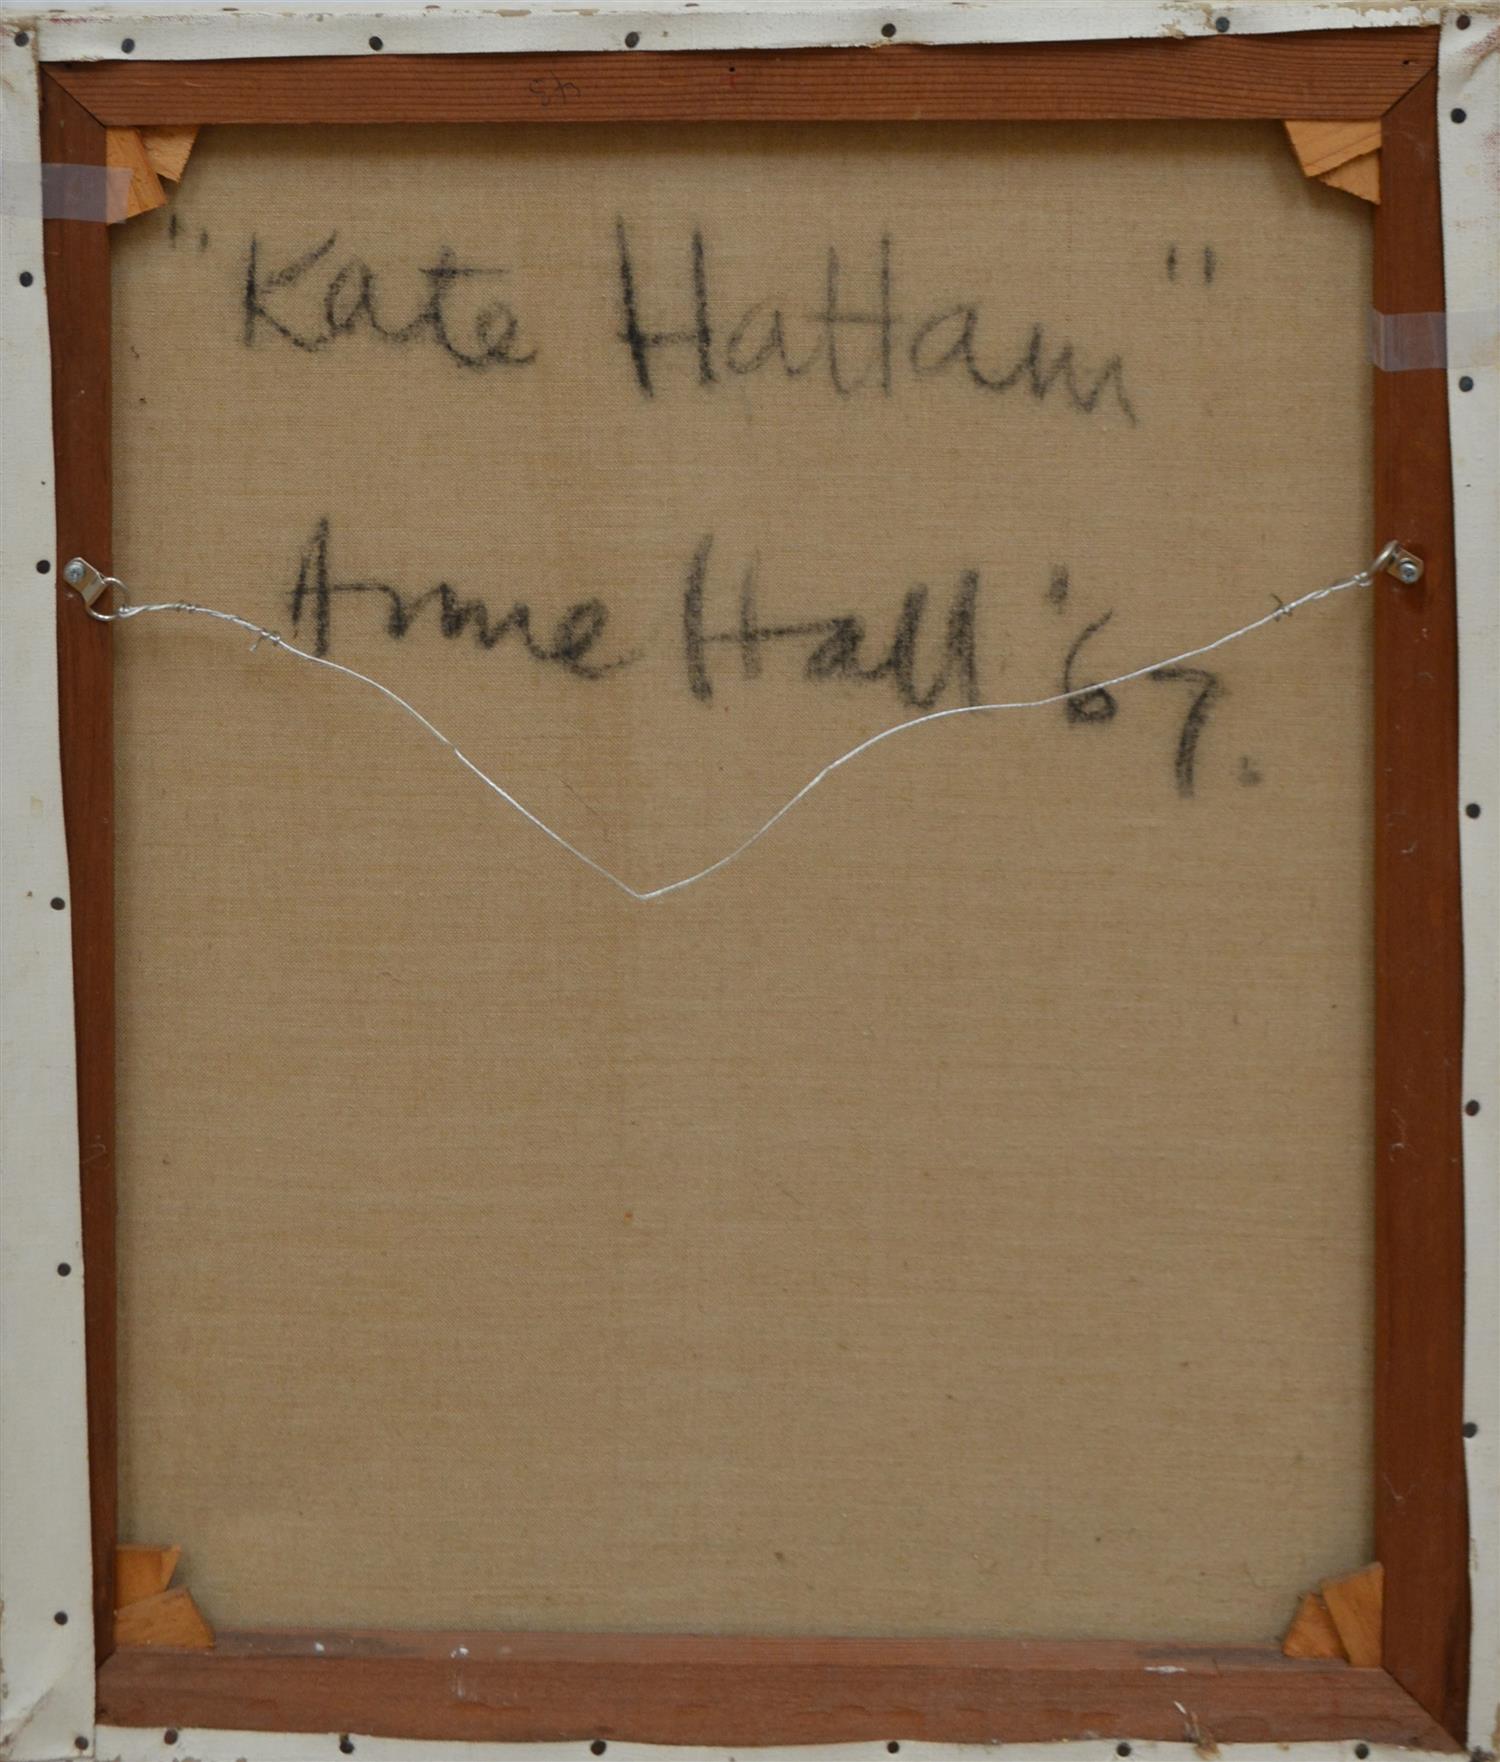 "Kate Hattam"
Anne Hall '67.